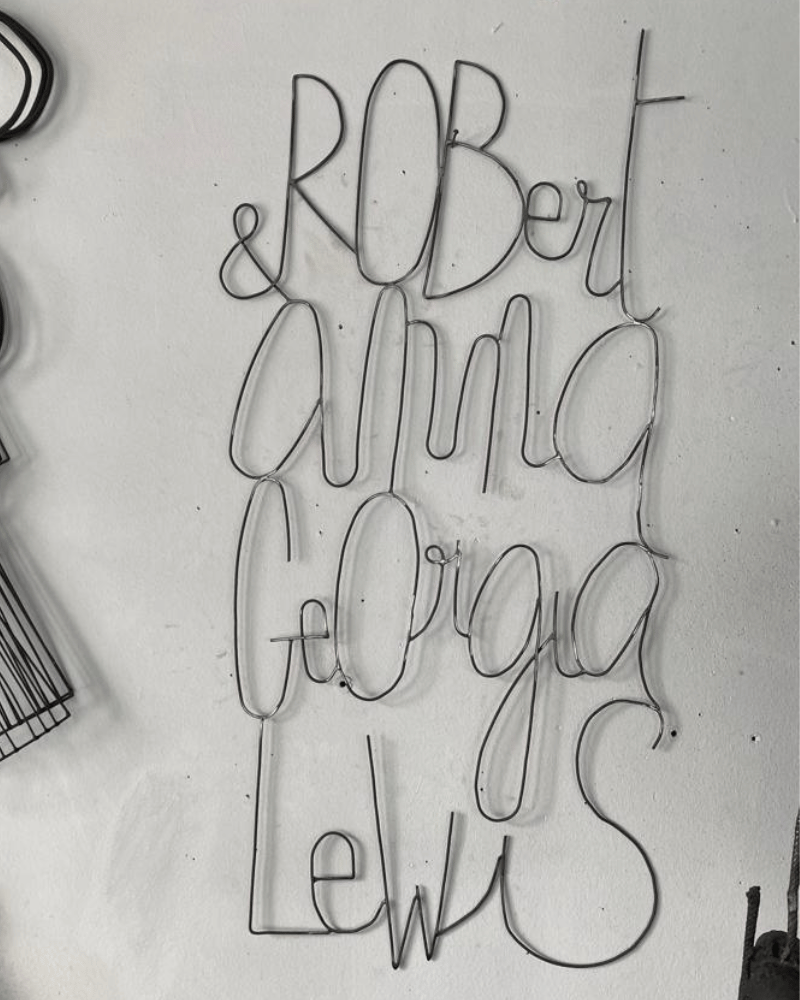 & ROBert
anna
GeOrgia
LewiS